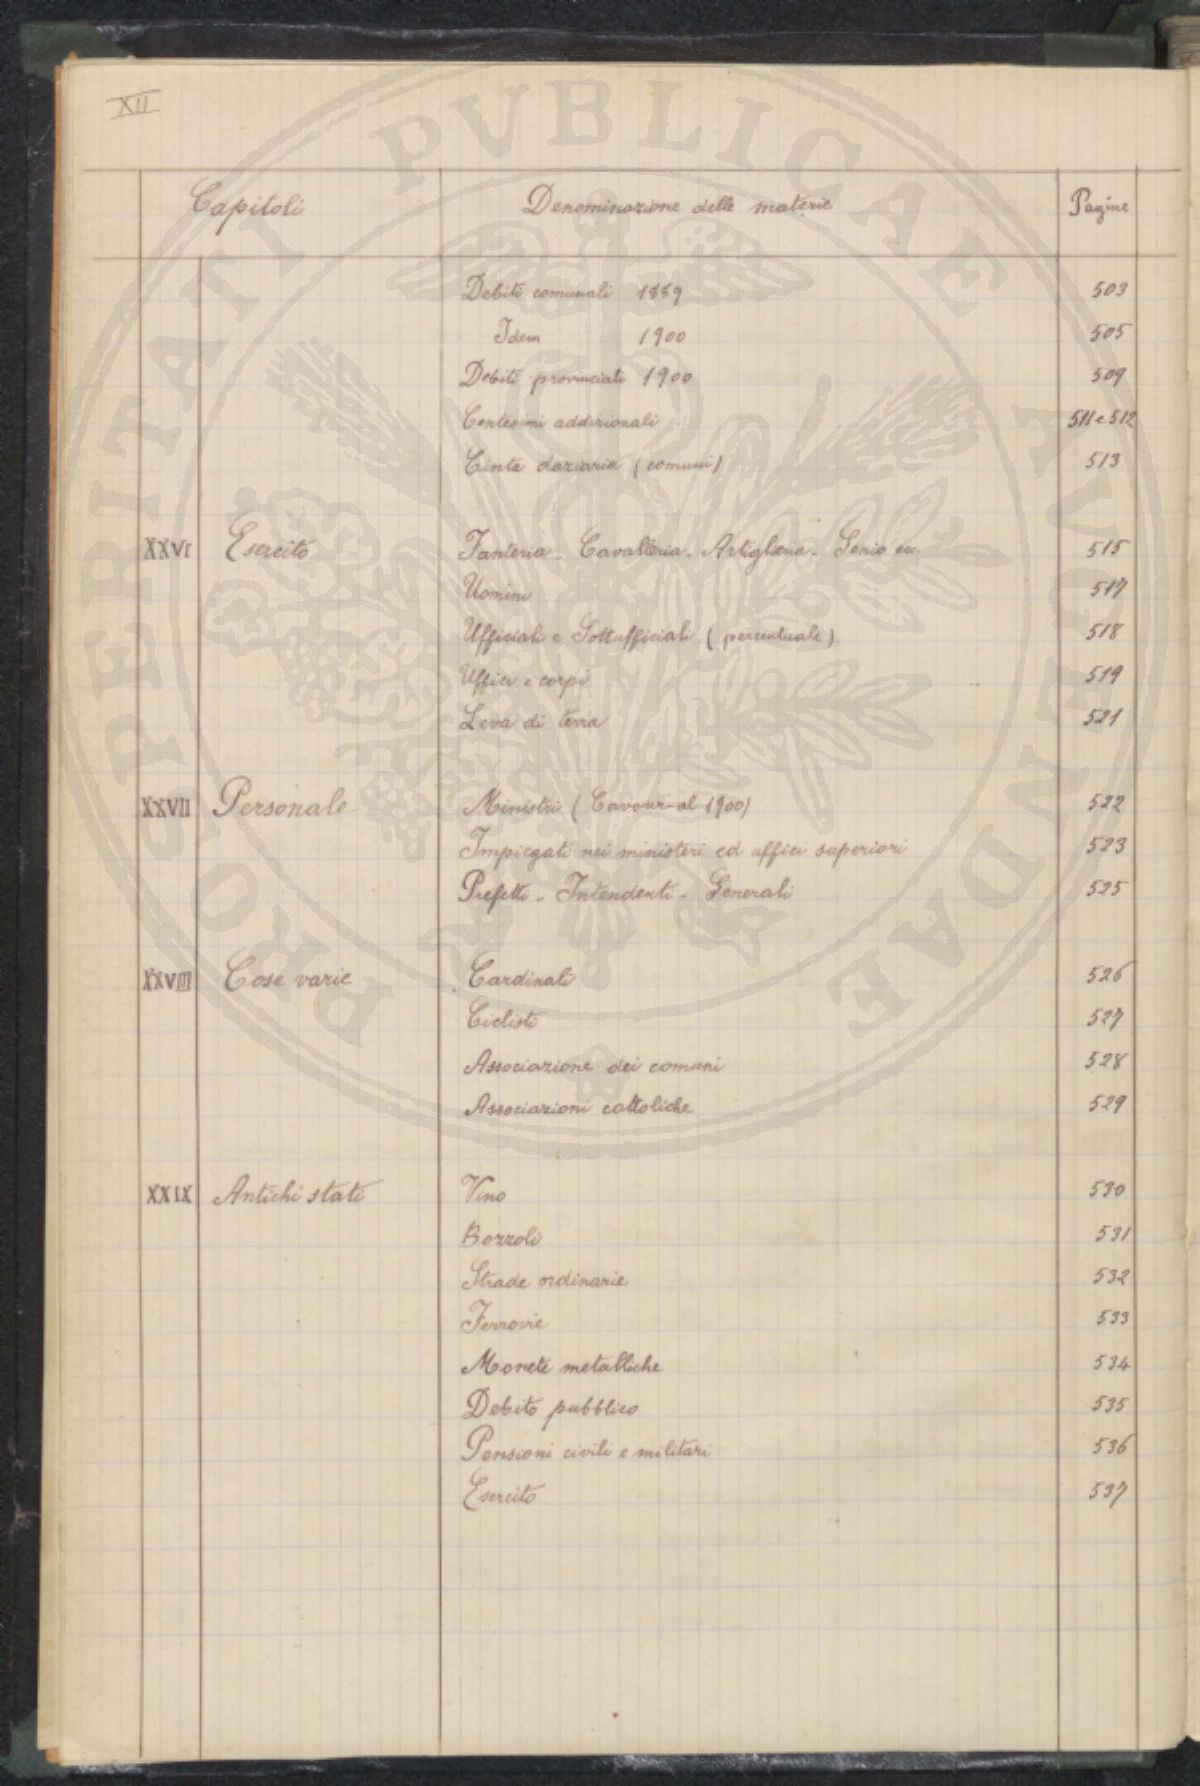 XII
Capitoli Denominazione delle materie Pagine
Debiti comunali 1889 503
Idem 1900 505
Debiti provinciali 1900 509
Centesimi addizionali 511 e 512
Cinta daziaria (comuni) 513
XXVI Esercito Fanteria - Cavalleria - Artiglieria - Genio ecc. 515
Uomini 517
Ufficiali e Sottufficiali (percentuale) 518
Uffici e corpi 519
Leva di terra 521
XXVII Personale Ministri (Cavour - al 1900) 522
Impiegati nei ministeri ed uffici superiori 523
Prefetti - Intendenti - Generali 525
XXVIII Cose varie Cardinali 526
Ciclisti 527
Associazione dei comuni 528
Associazioni cattoliche 529
XXIX Antichi stati Vino 530
Bozzoli 531
Strade ordinarie 532
Ferrovie 533
Monete metalliche 534
Debito pubblico 535
Pensioni civili e militari 536
Esercito 537
PROSPERITATI PUBLICAE AVGENDAE